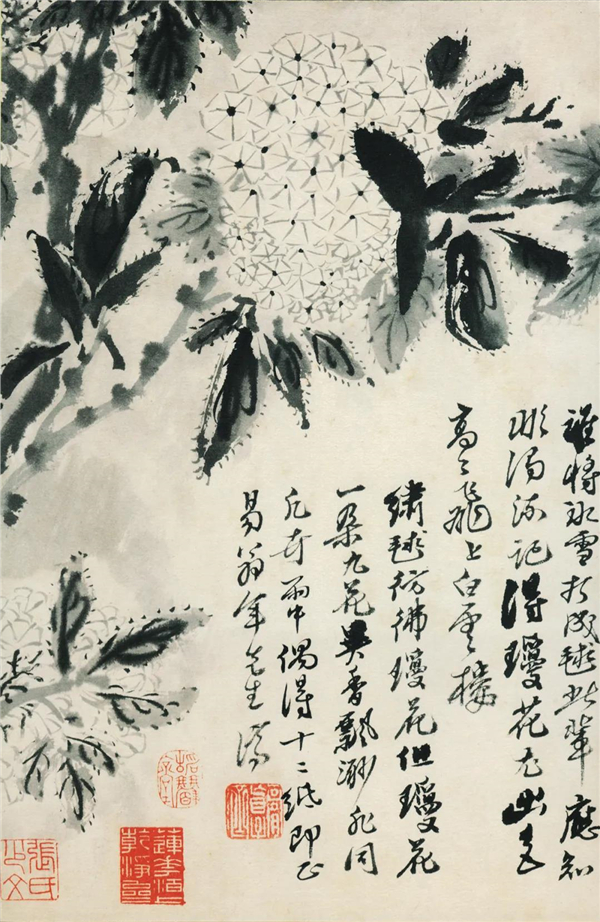 誰將冰雪打成毬此輩應知
濁流記得瓊花
高高飛上白雲樓
繡毬彷彿瓊花但瓊花
一朵九花異香飄渺非同
凡卉雨中偶得十二紙即正
易翁年先生 濟